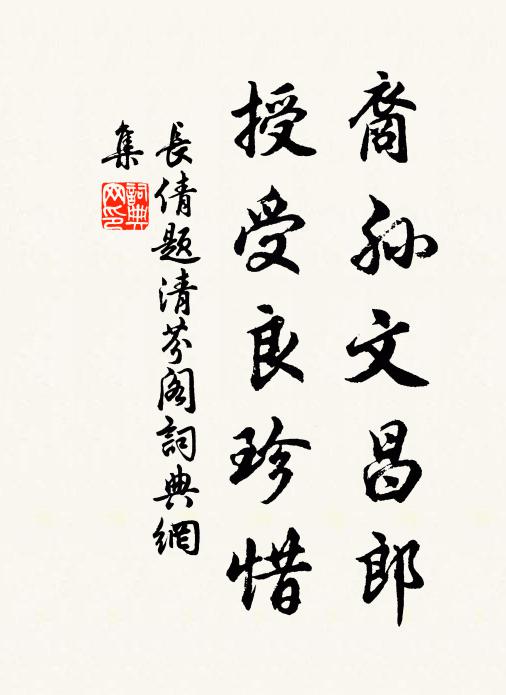 裔孙文昌郎
授受良珍惜
長倩題清芬閣詞典網
集
詞典网印